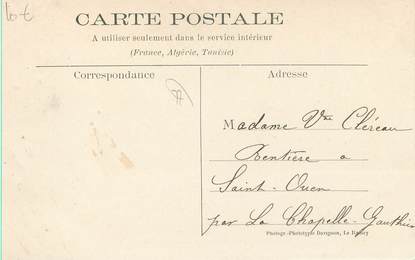 10 €
CARTE POSTALE
A utiliser seulement dans le service intérieur
(France, Algérie, Tunisie)
Correspondance
Adresse
77
Madame Vve Cléreau
Rentière a
Saint-Ouen
par La Chapelle-Gauthier
Photogr.-Phototypie Davignon, Le Raincy